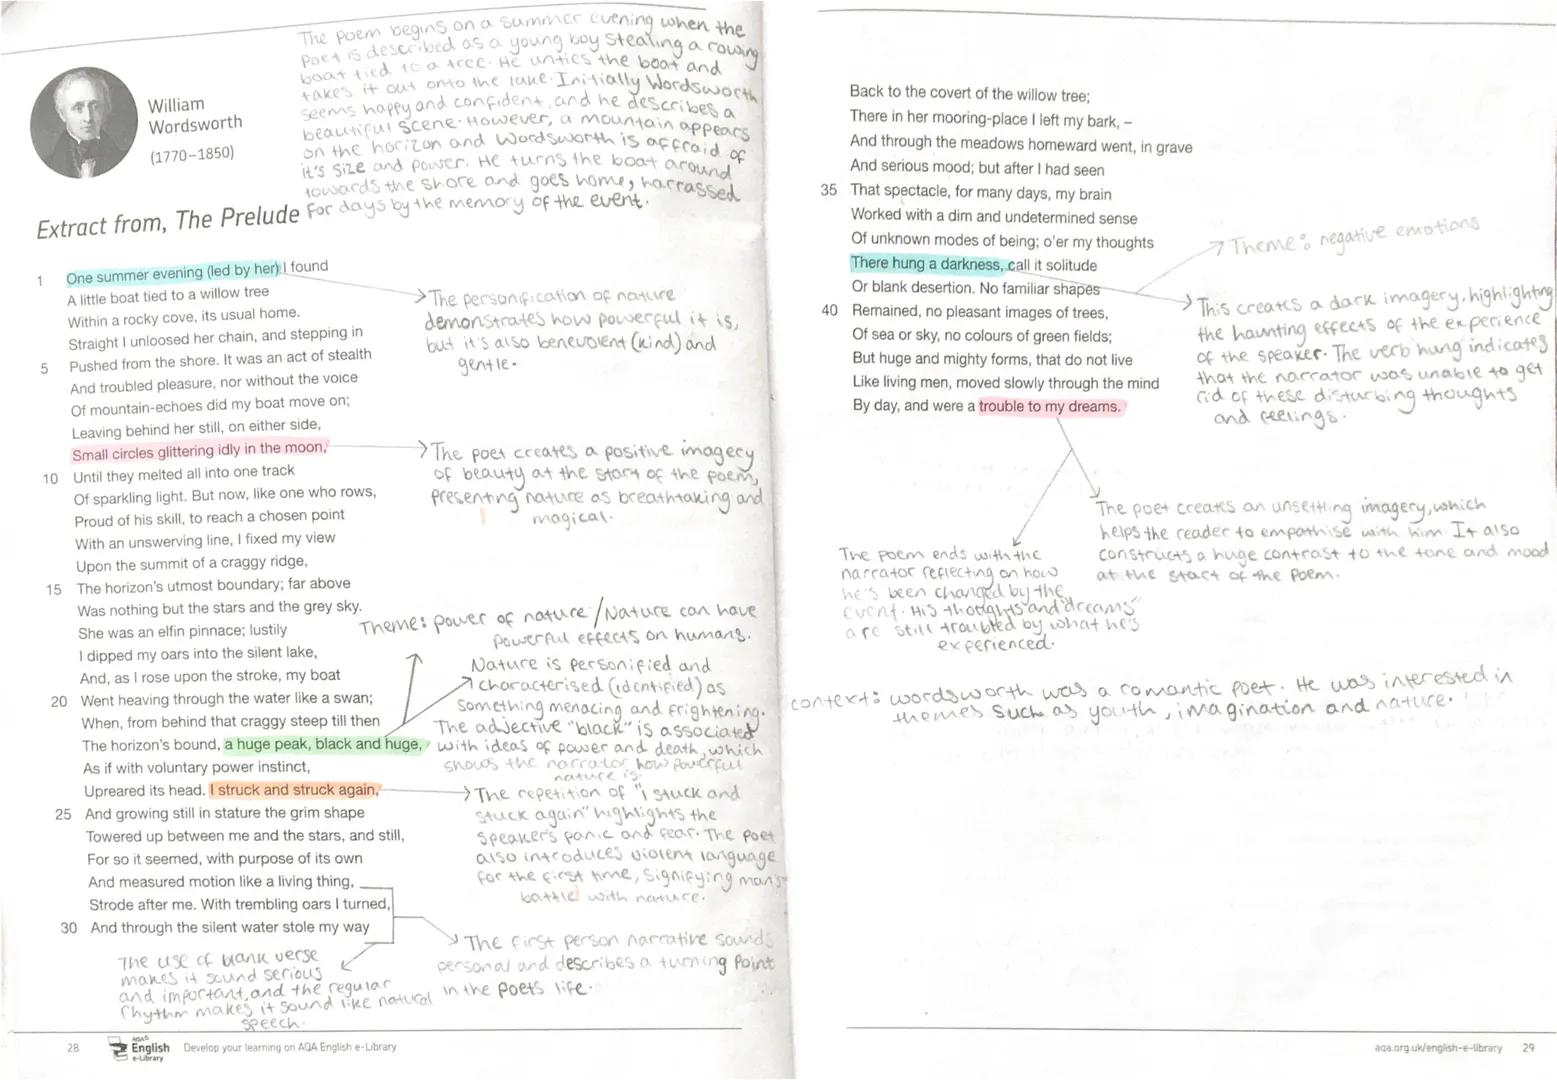 The poem begins on a summer evening when the
poet is described as a young boy stealing a rowing
boat tied to a tree. He unties the boat and
takes it out onto the lake. Initially Wordsworth
seems happy and confident, and he describes a
beautiful scene. However, a mountain appears
on the horizon and Wordsworth is affraid of
it's size and power. He turns the boat around
towards the shore and goes home, harrassed
for days by the memory of the event.
William
Wordsworth
(1770–1850)
Extract from, The Prelude
1 One summer evening (led by her) I found
A little boat tied to a willow tree
Within a rocky cove, its usual home.
Straight I unloosed her chain, and stepping in
5 Pushed from the shore. It was an act of stealth
And troubled pleasure, nor without the voice
Of mountain-echoes did my boat move on;
Leaving behind her still, on either side,
Small circles glittering idly in the moon,
10 Until they melted all into one track
Of sparkling light. But now, like one who rows,
Proud of his skill, to reach a chosen point
With an unswerving line, I fixed my view
Upon the summit of a craggy ridge,
15 The horizon's utmost boundary; far above
Was nothing but the stars and the grey sky.
She was an elfin pinnace; lustily
I dipped my oars into the silent lake,
And, as I rose upon the stroke, my boat
20 Went heaving through the water like a swan;
When, from behind that craggy steep till then
The horizon's bound, a huge peak, black and huge,
As if with voluntary power instinct,
Upreared its head. I struck and struck again,
25 And growing still in stature the grim shape
Towered up between me and the stars, and still,
For so it seemed, with purpose of its own
And measured motion like a living thing,
Strode after me. With trembling oars I turned,
30 And through the silent water stole my way
The personification of nature
demonstrates how powerful it is,
but it's also benevolent (kind) and
gentle.
The poet creates a positive imagery
of beauty at the start of the poem,
presenting nature as breathtaking and
magical.
Theme: power of nature / Nature can have
powerful effects on humans.
Nature is personified and
characterised (identified) as
something menacing and frightening.
The adjective "black" is associated
with ideas of power and death, which
shows the narrator how powerful
nature is.
The repetition of "i stuck and
stuck again" highlights the
speaker's panic and fear. The poet
also introduces violent language
for the first time, signifying man's
battle with nature.
The first person narrative sounds
personal and describes a turning point
in the poets life.
The use of blank verse
makes it sound serious
and important, and the regular
rhythm makes it sound like natural
speech.
28
AQA
English
e-Library
Develop your learning on AQA English e-Library
Back to the covert of the willow tree;
There in her mooring-place I left my bark, –
And through the meadows homeward went, in grave
And serious mood; but after I had seen
35 That spectacle, for many days, my brain
Worked with a dim and undetermined sense
Of unknown modes of being; o'er my thoughts
There hung a darkness, call it solitude
Or blank desertion. No familiar shapes
40 Remained, no pleasant images of trees,
Of sea or sky, no colours of green fields;
But huge and mighty forms, that do not live
Like living men, moved slowly through the mind
By day, and were a trouble to my dreams.
Theme: negative emotions
This creates a dark imagery, highlighting
the haunting effects of the experience
of the speaker. The verb hung indicates
that the narrator was unable to get
rid of these disturbing thoughts
and feelings.
The poet creates an unsettling imagery, which
helps the reader to empathise with him. It also
constructs a huge contrast to the tone and mood
at the start of the poem.
The poem ends with the
narrator reflecting on how
he's been changed by the
event. His "thoughts and dreams"
are still troubled by what he's
experienced.
context: wordsworth was a romantic poet. He was interested in
themes such as youth, imagination and nature.
aqa.org.uk/english-e-library 29